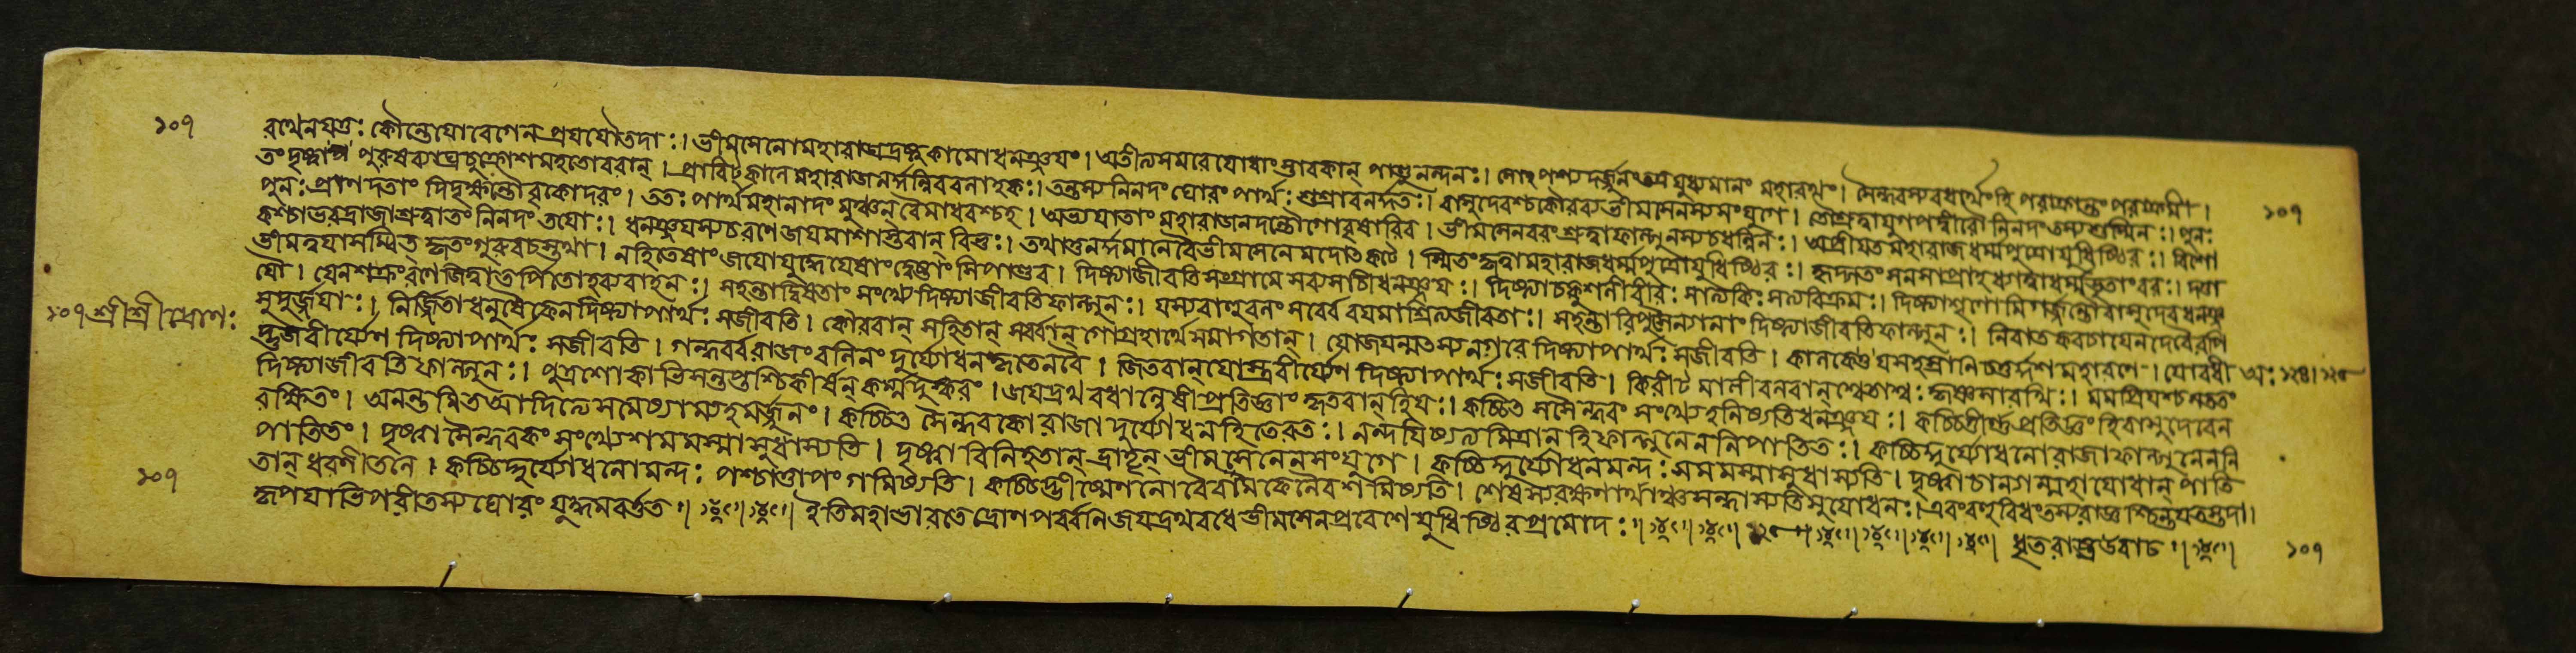 ১০৭ রথেন যত্তঃ কৌন্তেযো বেগেন প্রযযৌ তদাঃ। ভীমসেনো মহারাজ দ্রষ্টুকামো ধনঞ্জযং। অতীত্য সমরে যোধাং স্তাবকান্ পাণ্ডুনন্দনঃ। সোহপশ্যদর্জ্জুনং তত্র যুধ্যমানং মহারথং। সৈন্ধবস্য বধার্থং হি পরাক্রান্তং পরাক্রমী।
তং দৃষ্ট্বা পুরুষব্যাঘ্র চুক্রোশ মহতো বরান্। প্রাবিট্কালে মহারাজ নর্দ্দন্নিব বলাহকঃ। তন্তস্য নিনদং ঘোরং পার্থঃ শুশ্রাব নর্দ্দতঃ। বাসুদেবশ্চ কৌরব্য ভীমসেনস্য সংযুগে। তৌ শ্রুত্বা যুগপদ্বীরৌ নিনদং তস্য শুষ্মিনঃ। পুনঃ ১০৭
পুনঃ প্রাণদতাং দিদৃক্ষন্তৌ বৃকোদরং। ততঃ পার্থ মহানাদং মুঞ্চন্ বৈ মাধবশ্চহ। অভ্যযাতাং মহারাজ নদন্তৌ গোবৃষাবিব। ভীমসেনবরং শ্রুত্বা ফাল্গুনস্য চ ধন্বিনঃ। অপ্রীযত মহারাজ ধর্ম্মপুত্রো যুধিষ্ঠিরঃ। বিশো
কশ্চাভবদ্রাজা শ্রুত্বা তং নিনদং তযোঃ। ধনঞ্জযস্য চ রণে জযমাশাস্তবান্ বিভুঃ। তথা তু নর্দ্দমানে বৈ ভীমসেনে মদোৎকটে। স্মিতং কৃত্বা মহারাজ ধর্ম্মপুত্রো যুধিষ্ঠিরঃ। হৃদ্গতং মনসা প্রাহ ধ্যাত্বা ধর্ম্মভৃতাং বরঃ। দত্তা
ভীম ত্বযা সম্মিত্ কৃতং গুরুবচস্তথা। নহি তেষাং জযো যুদ্ধে যেষাং দ্বেষ্টাসি পাণ্ডব। দিষ্ট্যা জীবতি সংগ্রামে সব্যসাচী ধনঞ্জযঃ। দিষ্ট্যা চ কুশলী বীরঃ সাত্যকিঃ সত্যবিক্রমঃ। দিষ্ট্যা শৃণোমি গর্জ্জন্তৌ বাসুদেব ধনঞ্জ
যৌ। যেন শক্রং রণে জিত্বা তর্পিতো হব্যবাহনঃ। সহন্তা দ্বিষতাং সংখ্যে দিষ্ট্যা জীবতি ফাল্গুনঃ। যস্য বাহুবলং সর্ব্বে বযমাশ্রিত্য জীবতাঃ। সহন্তা রিপুসৈন্যানাং দিষ্ট্যা জীবতি ফাল্গুনঃ। নিবাত কবচা যেন দেবৈরপি
১০৭ শ্রীশ্রীদ্রোণঃ সুদুর্জ্জযাঃ। নির্জ্জিতা ধনুষৈকেন দিষ্ট্যা পার্থঃ সজীবতি। কৌরবান্ সহিতান্ সর্ব্বান্ গোগ্রহার্থে সমাগতান্। যোজযন্মৎস্যনগরে দিষ্ট্যা পার্থঃ সজীবতি। কালকেযসহস্রানি চতুর্দ্দশ মহারণে। যোবধী অঃ
দ্ভুজবীর্য্যেণ দিষ্ট্যা পার্থঃ সজীবতি। গন্ধর্ব্বরাজং বলিনং দুর্য্যোধনকৃতেন বৈ। জিতবান্ যোস্ত্রবীর্য্যেণ দিষ্ট্যা পার্থঃ সজীবতি। কিরীট মালী বলবান্ শ্বেতাশ্বঃ কৃষ্ণসারথিঃ। মম প্রিযশ্চ সততং
দিষ্ট্যা জীবতি ফাল্গুনঃ। পুত্রশোকাভিসন্তপ্তশ্চিকীর্ষন্ কর্ম্মদুষ্করং। জযদ্রথ বধান্বেষী প্রতিজ্ঞাং কৃতবান্ হি যঃ। কচ্চিত্ স সৈন্ধবং সংখ্যে হনিষ্যতি ধনঞ্জযঃ। কচ্চিত্তীর্ণ্ণপ্রতিজ্ঞং হি বাসুদেবেন
রক্ষিতং। অনস্তমিত আদিত্যে সমেষ্যাম্যহমর্জ্জুনং। কচ্চিত্ সৈন্ধবকো রাজা দুর্য্যোধনহিতেরতঃ। নন্দযিষ্যত্যমিত্রান হি ফাল্গুনেন নিপাতিতঃ। কচ্চিদ্দুর্য্যোধনো রাজা ফাল্গুনেন নি
পাতিতং। দৃষ্ট্বা সৈন্ধবকং সংখ্যে শমমস্মাসু ধাস্যতি। দৃষ্ট্বা বিনিহতান্ ভ্রাতৄন্ ভীমসেনেন সংযুগে। কচ্চিদ্দুর্য্যোধন মন্দঃ সমমস্মাসু ধাস্যতি। দৃষ্ট্বা চান্যান্মহাযোধান্ পাতি
তান্ ধরণীতলে। কচ্চিদ্দুর্য্যোধনো মন্দঃ পশ্চাত্তাপং গমিষ্যতি। কচ্চিদ্ভীষ্মেণ নো বৈরমেকেনৈব শমিষ্যতি। শেষস্য রক্ষণার্থাঞ্চ সন্ধাস্যতি সুযোধনঃ। এবং বহুবিধং তস্য রাজ্ঞশ্চিন্তযতস্তদা।।
১০৭ কৃপযাভিপরীতস্য ঘোরং যুদ্ধমবর্ত্তত॥ ইতি মহাভারতে দ্রোণপর্ব্বনি জযদ্রথবধে ভীমসেনপ্রবেশে যুধিষ্ঠিরপ্রমোদঃ॥ ধৃতরাষ্ট্র উবাচ॥ ১০৭